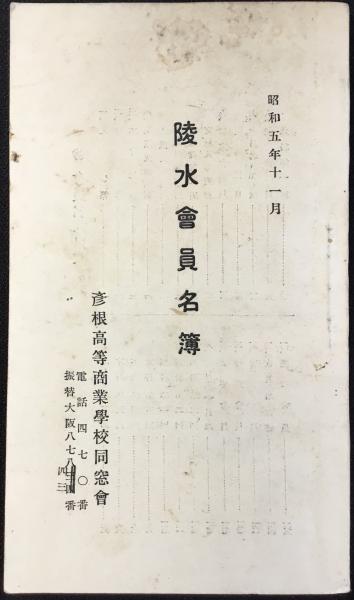 昭和五年十一月
陵水會員名簿
彦根高等商業學校同窓會
電話四七〇番
振替大阪八七八四三番